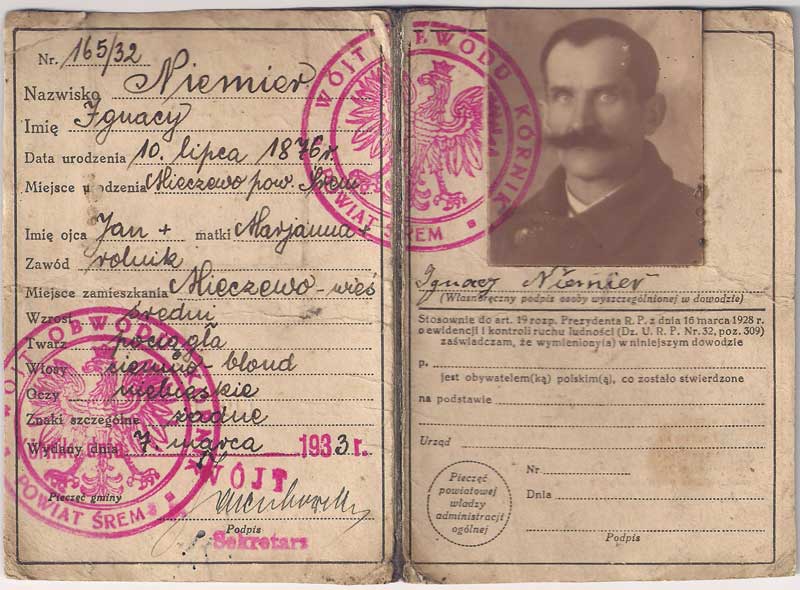 Nr. 165/32
Nazwisko Niemier
Imię Ignacy
Data urodzenia 10. lipca 1876 r.
Miejsce urodzenia Mieczewo pow. Śrem
Imię ojca Jan + matki Marjanna +
Zawód rolnik
Miejsce zamieszkania Mieczewo - wieś
Wzrost średni
Twarz pociągła
Włosy ciemno - blond
Oczy niebieskie
Znaki szczególne żadne
Wydany dnia 7. marca 1933. r.
WÓJT
Pieczęć gminy
Podpis
Sekretarz
WÓJT OBWODU KÓRNIK
POWIAT ŚREM
WÓJT OBWODU KÓRNIK
POWIAT ŚREM
Ignacy Niemier
(Własnoręczny podpis osoby wyszczególnionej w dowodzie)
Stosownie do art. 19 rozp. Prezydenta R. P. z dnia 16 marca 1928 r.
o ewidencji i kontroli ruchu ludności (Dz. U. R. P. Nr. 32, poz. 309)
zaświadczam, że wymieniony(a) w niniejszym dowodzie
p.
jest obywatelem(ką) polskim(ą), co zostało stwierdzone
na podstawie
Urząd
Nr
Dnia
Pieczęć
powiatowej
władzy
administracji
ogólnej
Podpis